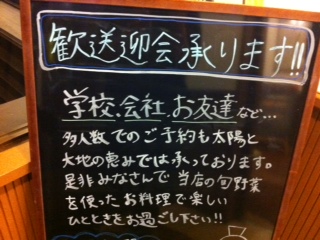 歓送迎会承ります!!
学校.会社.お友達など...
多人数でのご予約も太陽と
大地の恵みでは承っております。
是非みなさんで当店の旬野菜
を使ったお料理で楽しい
ひとときをお過ごし下さい!!